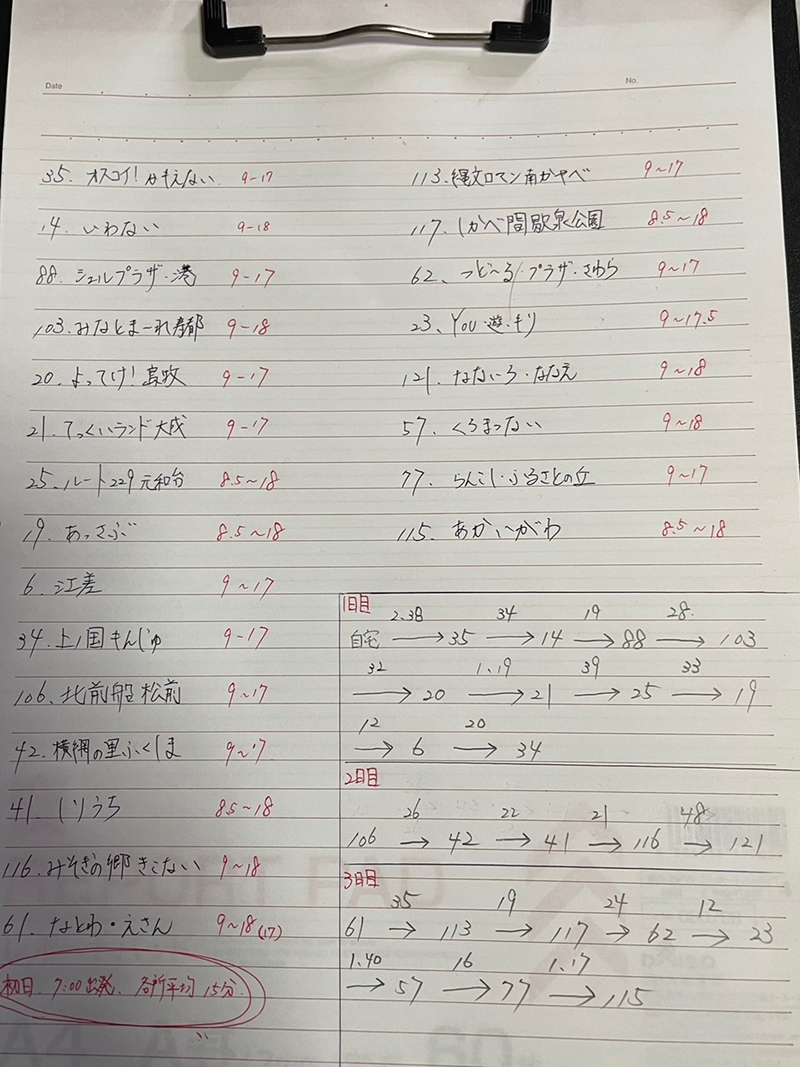 Date
No.
35. オスコイ！かもえない 9-17
14. いわない 9-18
88. シェルプラザ・港 9-17
103. みなとまーれ寿都 9-18
20. よってけ！島牧 9-17
21. てっくいランド大成 9-17
25. ルート229元和台 8.5~18
19. あっさぶ 8.5~18
6. 江差 9~17
34. 上ノ国もんじゅ 9-17
106. 北前船 松前 9~17
42. 横綱の里ふくしま 9~17
41. しりうち 8.5~18
116. みそぎの郷 きこない 9~18
61. なとわ・えさん 9~18(17)
初日 7:00出発、各所平均15分
113. 縄文ロマン南かやべ 9~17
117. しかべ間歇泉公園 8.5~18
62、つど～る・プラザ・さわら 9~17
23、YOU・遊・もり 9~17.5
121. なないろ・ななえ 9~18
57. くろまつない 9~18
77. らんこし・ふるさとの丘 9~17
115. あかいがわ 8.5~18
1日目
2.38 34 19 28.
自宅 → 35 → 14 → 88 → 103
32 1.19 39 33
→ 20 → 21 → 25 → 19
12 20
→ 6 → 34
2日目
26 22 21 48
106 → 42 → 41 → 116 → 121
3日目
35 19 24 12
61 → 113 → 117 → 62 → 23
1.40 16 1.17
→ 57 → 77 → 115